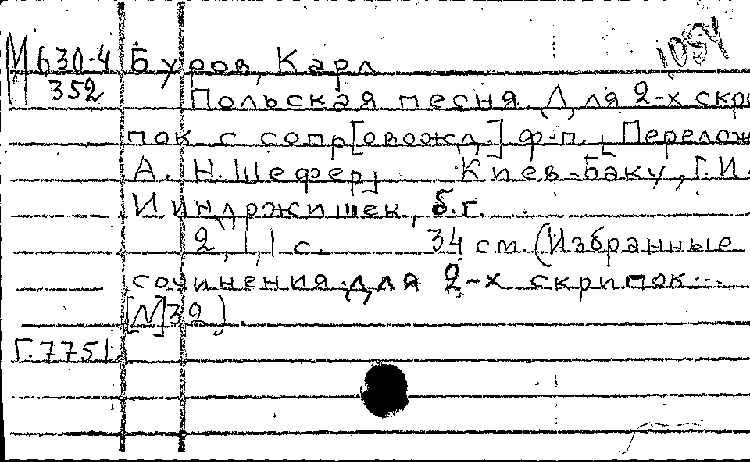 М 630-4 Буров, Карл 1054
352 Польская песня. Для 2-х скри
пок с сопр[овожд.] ф-п. [Перелож
А. Н. Шефер] Киев-Баку, Г. И.
Индржишек, б.г.
2, 1, 1 с. 34 см. (Избранные
сочинения для 2-х скрипок...
[№]32).
Г. 7751